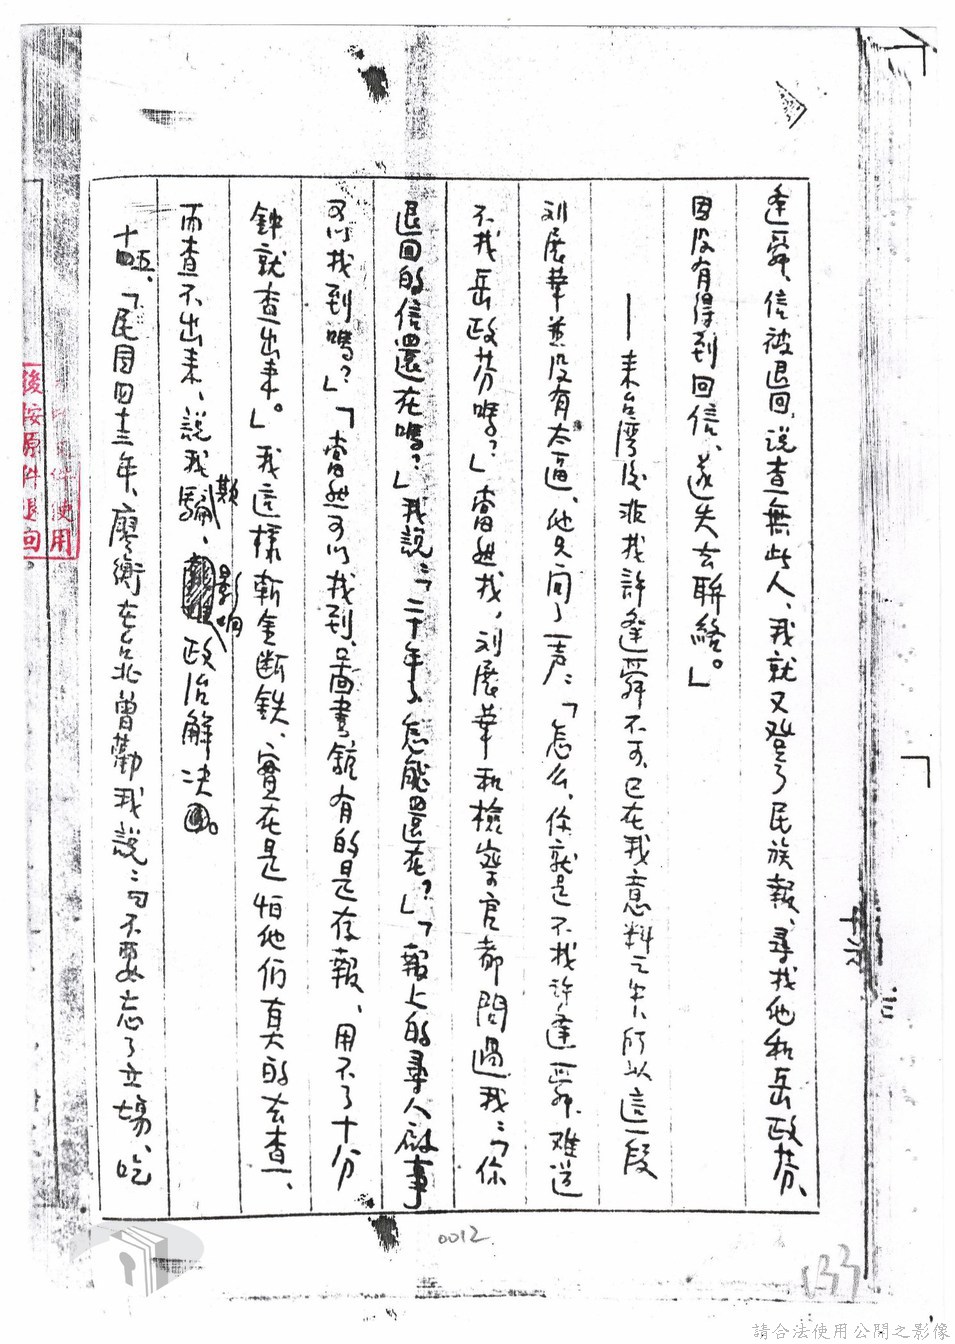 逢舜、信被退回、说查無此人、我就又登了民族報、尋找他和岳政芬、
因没有得到回信、遂失去聯絡。」
——来台湾後非找許逢舜不可、已在我意料之中、所以這一段
刘展華並没有太逼、他只问了一声：「怎么、你就是不找許逢舜、难道
不找岳政芬嗎？」當然找，刘展華和檢察官都問過我：「你
退回的信還在嗎？」我說：「二十年了、怎能還在？」「報上的尋人啟事
可以找到嗎？」「當然可以找到、圖書館有的是存報、用不了十分
鐘就查出来。」我這樣斬金断鉄、實在是怕他們真的去查、
而查不出来、說我欺騙、影响政治解决。
十五、「民國四十三年、廖衡在台北曾勸我說：「不要忘了立場、吃
後按原件退回
件使用
十六
三
0012
133
請合法使用公開之影像